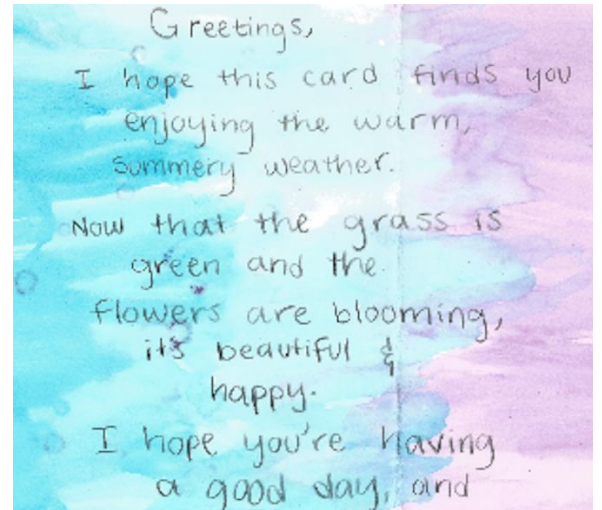 Greetings,
I hope this card finds you
enjoying the warm,
summery weather.
Now that the grass is
green and the
flowers are blooming,
it's beautiful &
happy.
I hope you're having
a good day, and